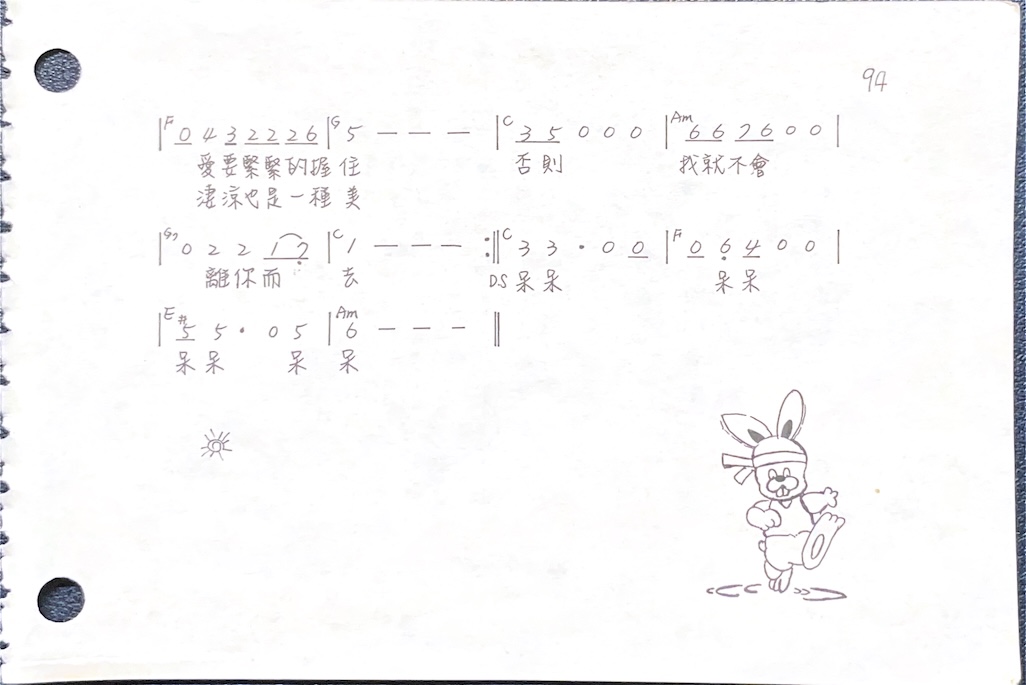 94
|F 0 4 3 2 2 2 6 |G 5 — — — |C 3 5 0 0 0 |Am 6 6 7 6 0 0 |
愛要緊緊的握住 否則 找就不會
淒涼也是一種美
|G7 0 2 2 1 7 |C 1 — — — :‖C 3 3 · 0 0 |F 0 6 4 0 0 |
離你而 去 D.S 呆呆 呆呆
|E #5 5 · 0 5 |Am 6 — — — ‖
呆呆 呆 呆